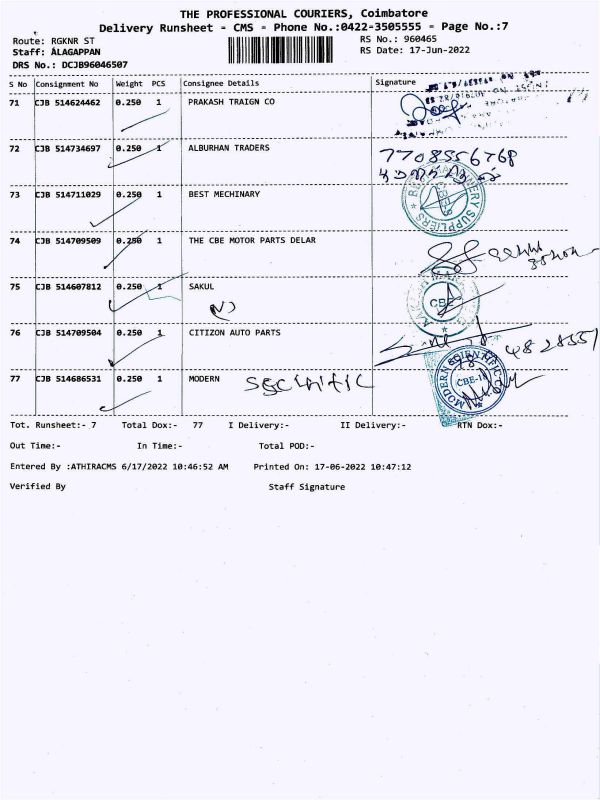 THE PROFESSIONAL COURIERS, Coimbatore
Delivery Runsheet - CMS - Phone No.:0422-3505555 - Page No.:7
Route: RGKNR ST
RS No.: 960465
Staff: ALAGAPPAN
RS Date: 17-Jun-2022
DRS No.: DCJB96046507
S No Consignment No Weight PCS Consignee Details Signature
71 CJB 514624462 0.250 1 PRAKASH TRAIGN CO
72 CJB 514734697 0.250 1 ALBURHAN TRADERS 7708556768
73 CJB 514711029 0.250 1 BEST MECHINARY
74 CJB 514709509 0.250 1 THE CBE MOTOR PARTS DELAR
75 CJB 514607812 0.250 1 SAKUL
CBE
76 CJB 514709504 0.250 1 CITIZON AUTO PARTS
4828551
77 CJB 514686531 0.250 1 MODERN
MODERN SCIENTIFIC CO
CBE-18
Tot. Runsheet:- 7 Total Dox:- 77 I Delivery:- II Delivery:- RTN Dox:-
Out Time:- In Time:- Total POD:-
Entered By :ATHIRACMS 6/17/2022 10:46:52 AM Printed On: 17-06-2022 10:47:12
Verified By Staff Signature